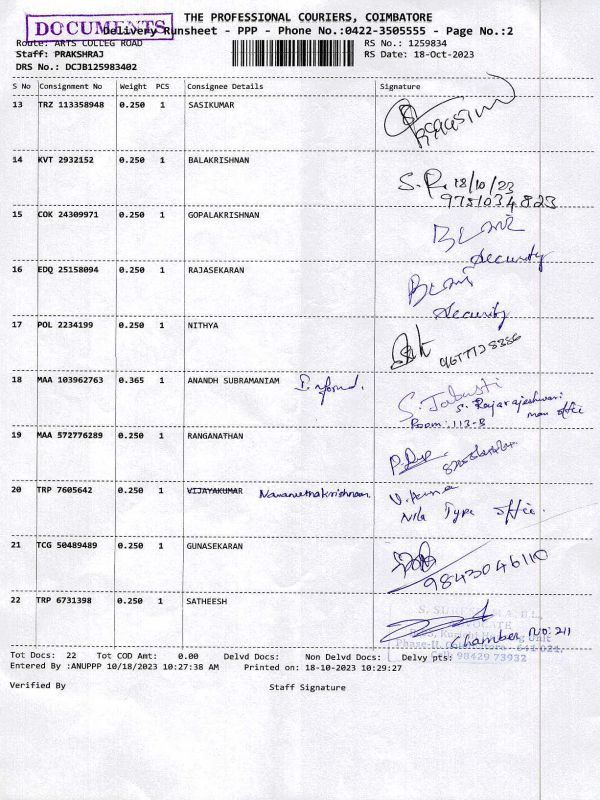 THE PROFESSIONAL COURIERS, COIMBATORE
DOCUMENTS
Delivery Runsheet - PPP - Phone No.:0422-3505555 - Page No.:2
Route: ARTS COLLEG ROAD RS No.: 1259834
Staff: PRAKSHRAJ RS Date: 18-Oct-2023
DRS No.: DCJB125983402
S No Consignment No Weight PCS Consignee Details Signature
13 TRZ 113358948 0.250 1 SASIKUMAR
14 KVT 2932152 0.250 1 BALAKRISHNAN
S.R. 18/10/23
9751034823
15 COK 24309971 0.250 1 GOPALAKRISHNAN
Security
16 EDQ 25158094 0.250 1 RAJASEKARAN
Security
17 POL 2234199 0.250 1 NITHYA
18 MAA 103962763 0.365 1 ANANDH SUBRAMANIAM
S. Rajarajeshwari
Room: 113-B
19 MAA 572776289 0.250 1 RANGANATHAN
20 TRP 7605642 0.250 1 VIJAYAKUMAR Navaneethakrishnan
Nila Type office.
21 TCG 50489489 0.250 1 GUNASEKARAN
9843046110
22 TRP 6731398 0.250 1 SATHEESH
Chamber No: 211
Cell: 98429 73932
Tot Docs: 22 Tot COD Amt: 0.00 Delvd Docs: Non Delvd Docs: Delvy pts:
Entered By :ANUPPP 10/18/2023 10:27:38 AM Printed on: 18-10-2023 10:29:27
Verified By Staff Signature